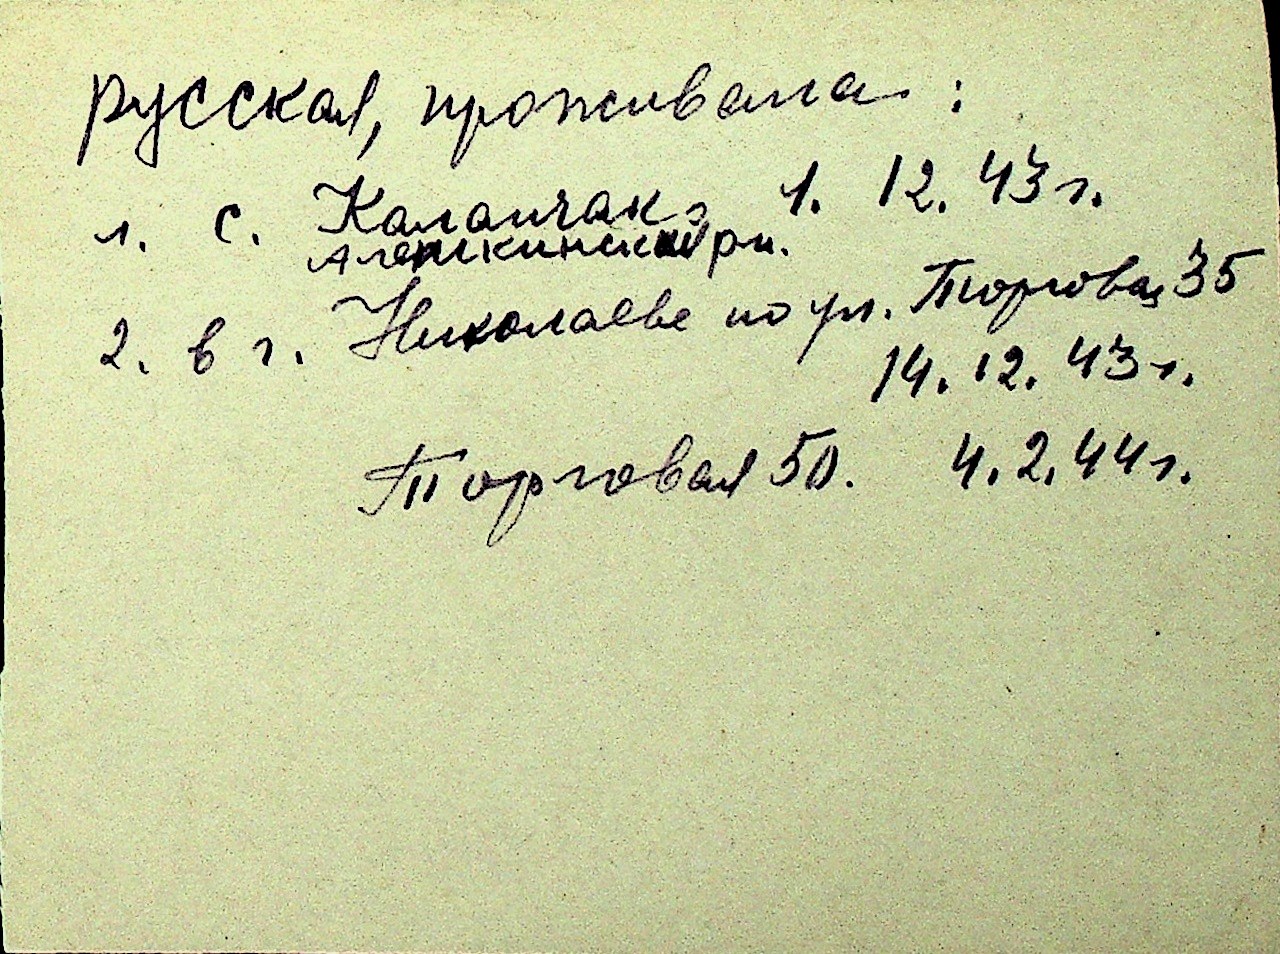 русская, проживала:
1. с. Каланчак, 1. 12. 43 г.
Алешкинский рн.
2. в г. Николаеве по ул. Торговая 35
14. 12. 43 г.
Торговая 50. 4. 2. 44 г.